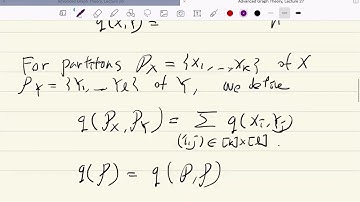 Advanced Graph Theory, Lecture 27
q(X,Y) =
For partitons P_X = {X_1, ..., X_k} of X
P_Y = {Y_1, ... Y_l} of Y, we define
q(P_X, P_Y) = Σ q(X_i, Y_j)
(i,j) ∈ [k]×[l]
q(P) = q(P, P)